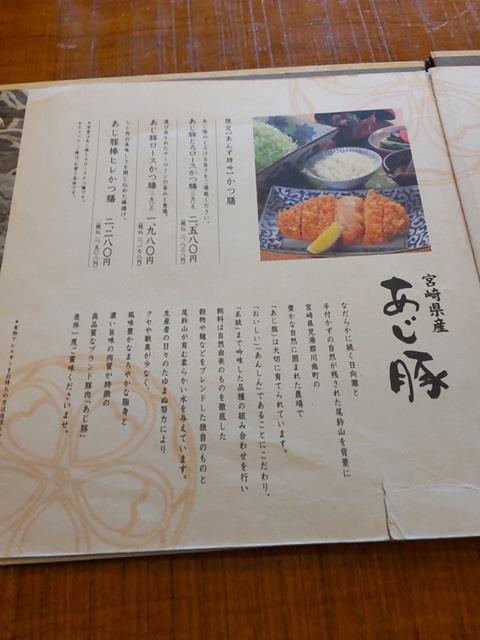 宮崎県産
あじ豚
なだらかに続く日向灘と
手付かずの自然が残された尾鈴山を背景に
宮崎県児湯郡川南町の
豊かな自然に囲まれた農場で
「あじ豚」は大切に育てられています。
「おいしい」「あんしん」であることにこだわり、
「系統」まで吟味した品種の組み合わせを行い
飼料は自然由来のものを徹底した
穀物や麹などをブレンドした独自のものと
尾鈴山が育む柔らかい水を与えています。
生産者の日々のたゆまぬ努力により
クセや獣臭が少なく、
風味豊かなまろやかな脂身と
濃い旨味の肉質が特徴の
高品質なブランド豚肉「あじ豚」
是非一度ご賞味くださいませ。
限定【あんず特吟】かつ膳
あじ豚のとろける旨さをご堪能ください。
あじ豚とろロースかつ膳
二、五八〇円
選び抜かれたサーロインの旨みと食感。
あじ豚ロースかつ膳
一、九八〇円
ヒレ肉の美味しさを閉じ込めた棒揚げ。
あじ豚棒ヒレかつ膳
二、二八〇円